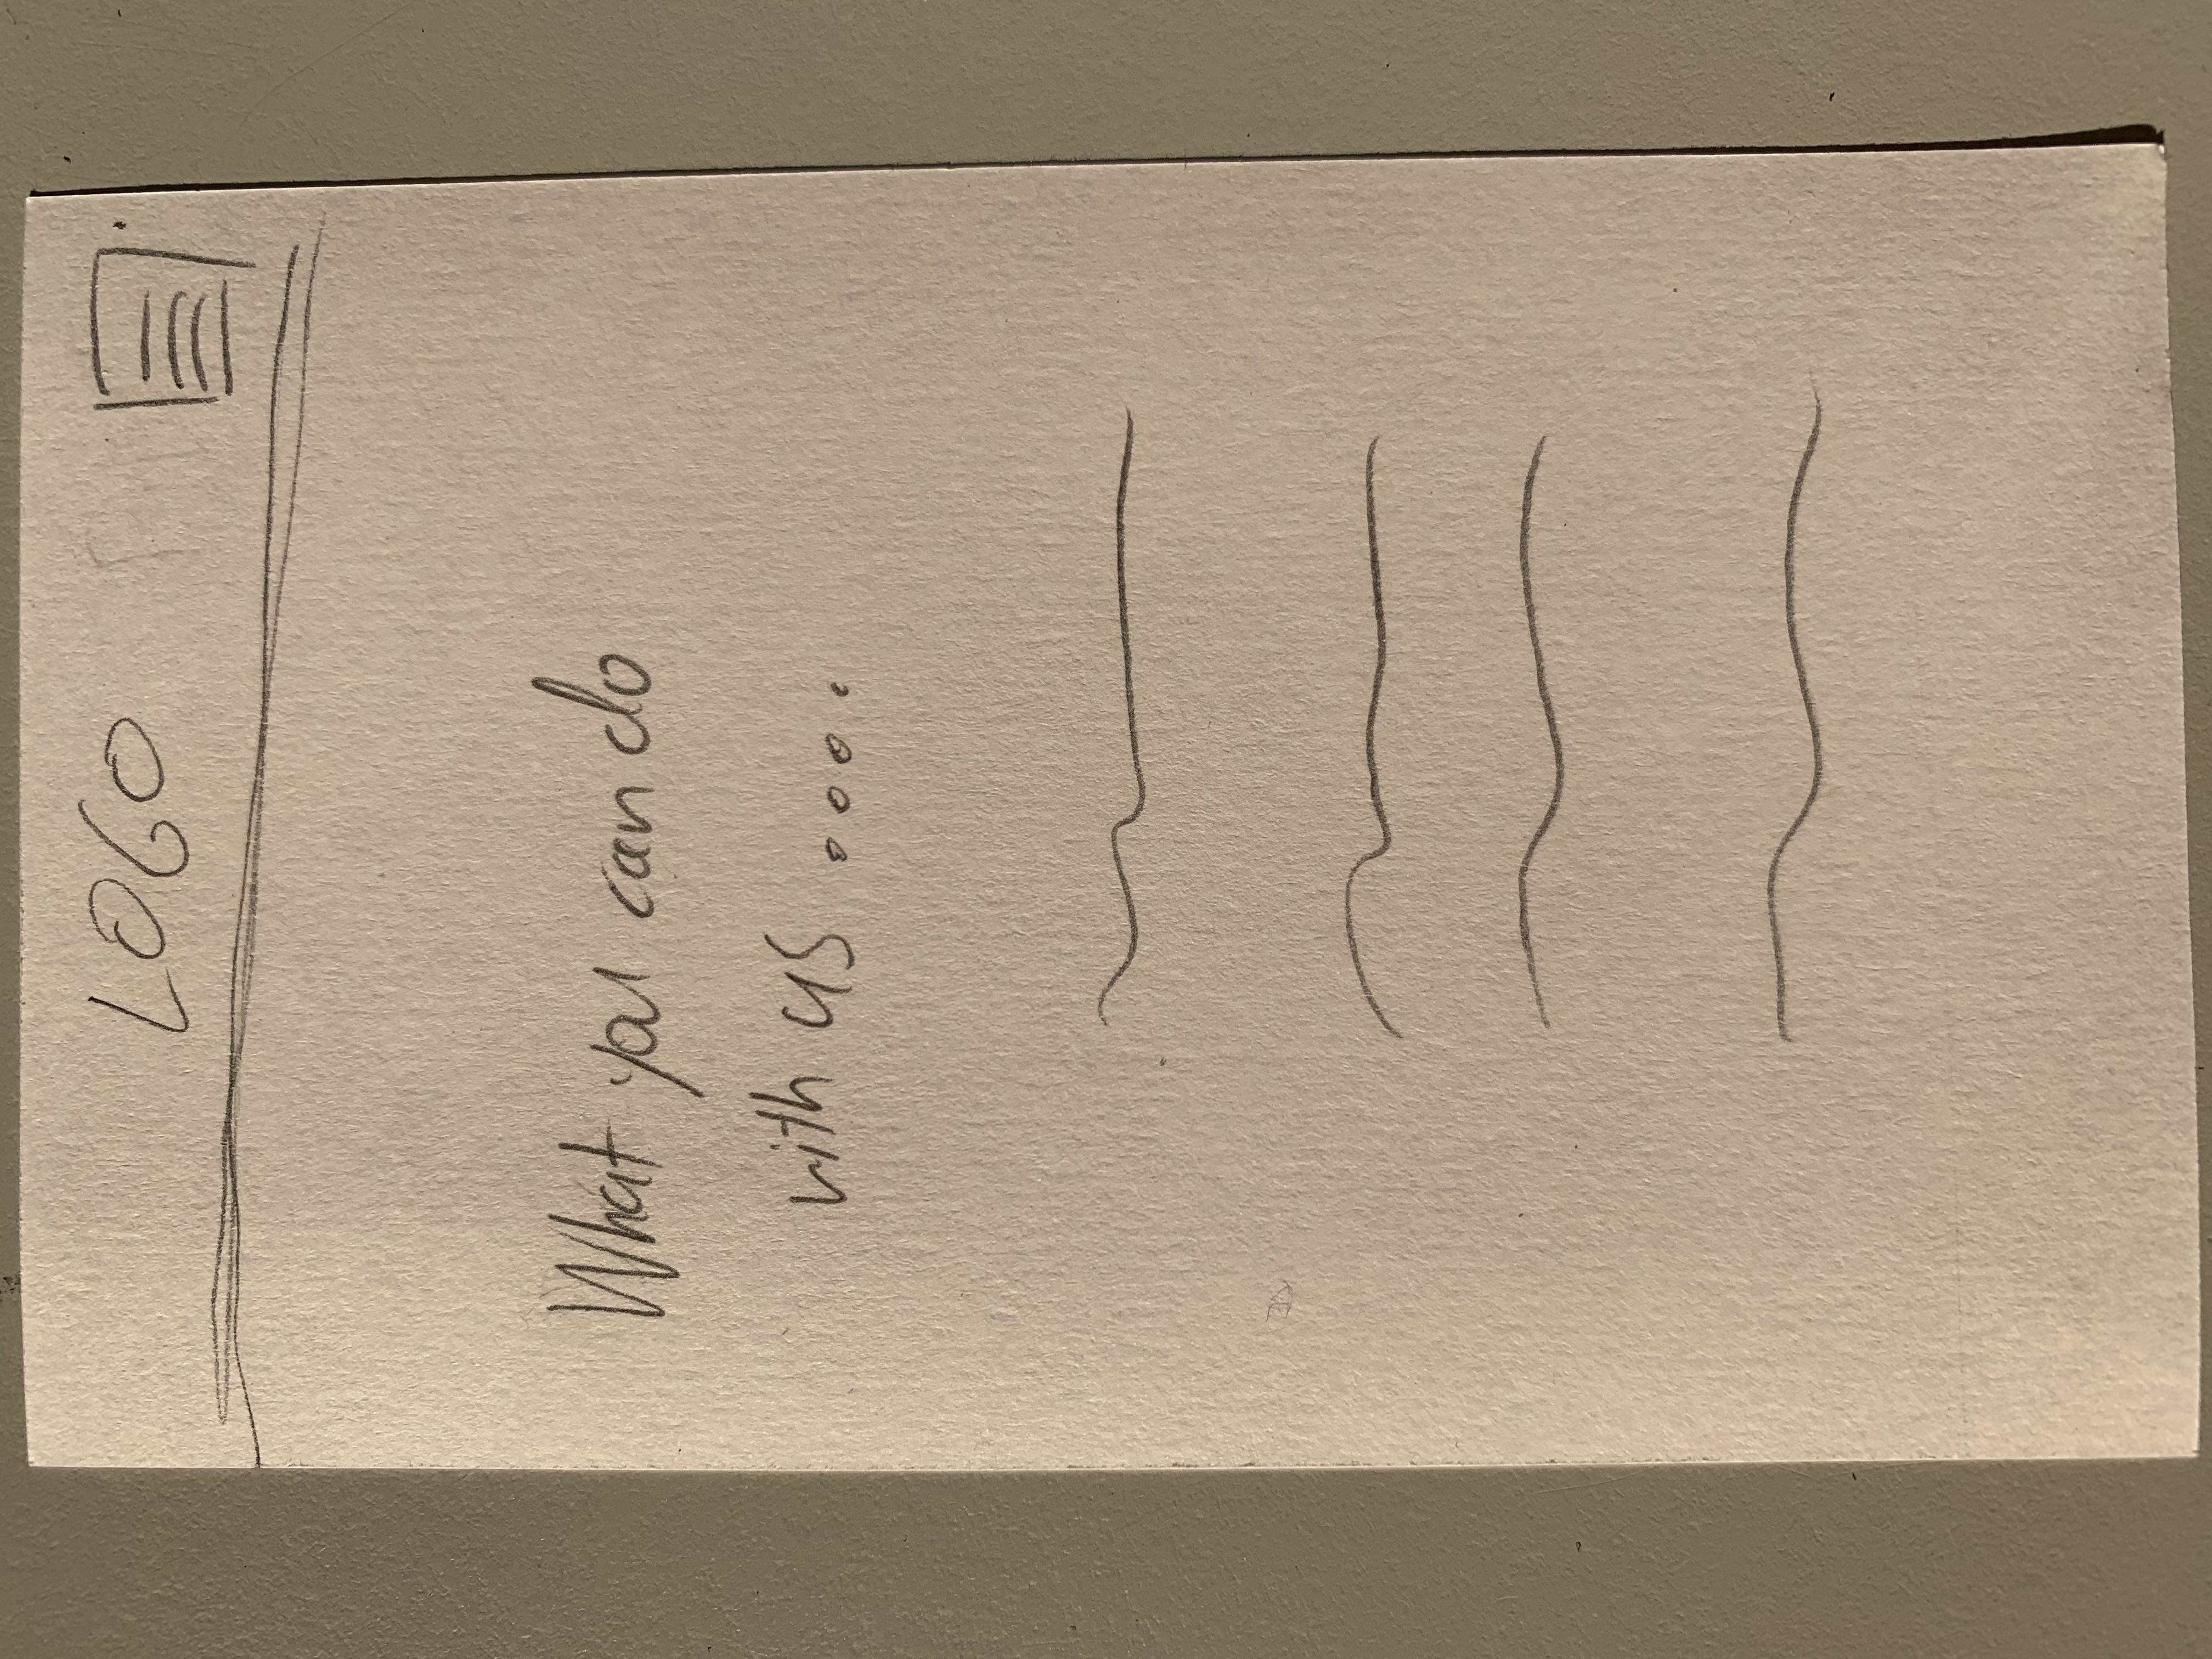 LOGO
What you can do
with us ....